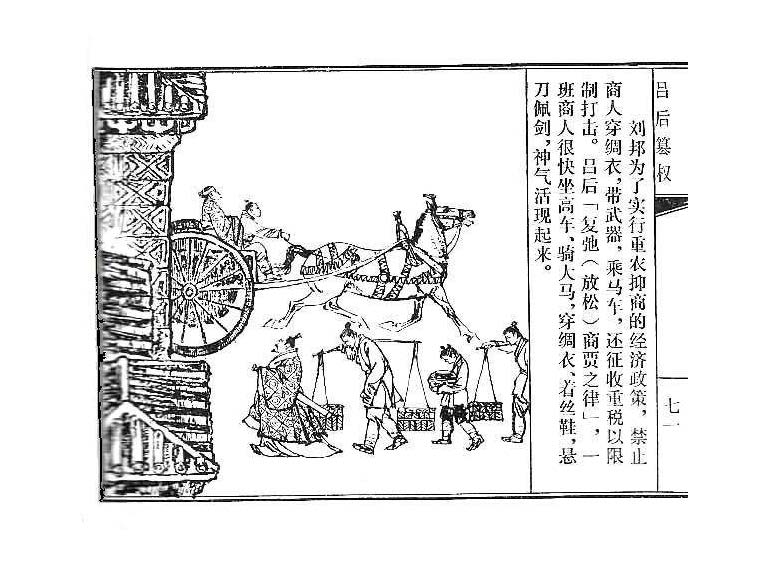 吕后篡权
刘邦为了实行重农抑商的经济政策，禁止
商人穿绸衣，带武器，乘马车，还征收重税以限
制打击。吕后「复弛（放松）商贾之律」，一
班商人很快坐高车、骑大马，穿绸衣、着丝鞋，悬
刀佩剑，神气活现起来。
七一